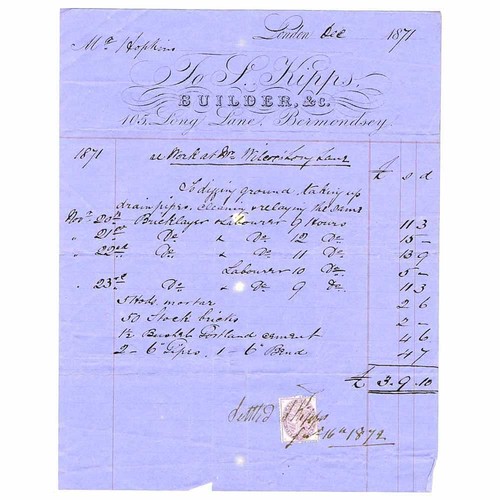 London Dec 1871
Mr Hopkins
To S. Kipps.
BUILDER, &c.
105, Long Lane, Bermondsey.
1871 Work at Long Lane
£ s d
To digging ground, taking up
drain pipes, cleaning & relaying the same
Novr 20th Bricklayer & Labourer 9 Hours 11 3
" 21st Do & Do 12 Do 15 -
" 22nd Do & Do 11 Do 13 9
Labourer 10 Do 5 -
" 23rd Do & Do 9 Do 11 3
3 Hods mortar 2 6
50 Stock bricks 2 -
1½ Bushels Portland cement 4 6
2 - 6" Pipes, 1 - 6" Bend 4 7
£ 3. 9. 10
Settled S Kipps
Jany 16th 1872